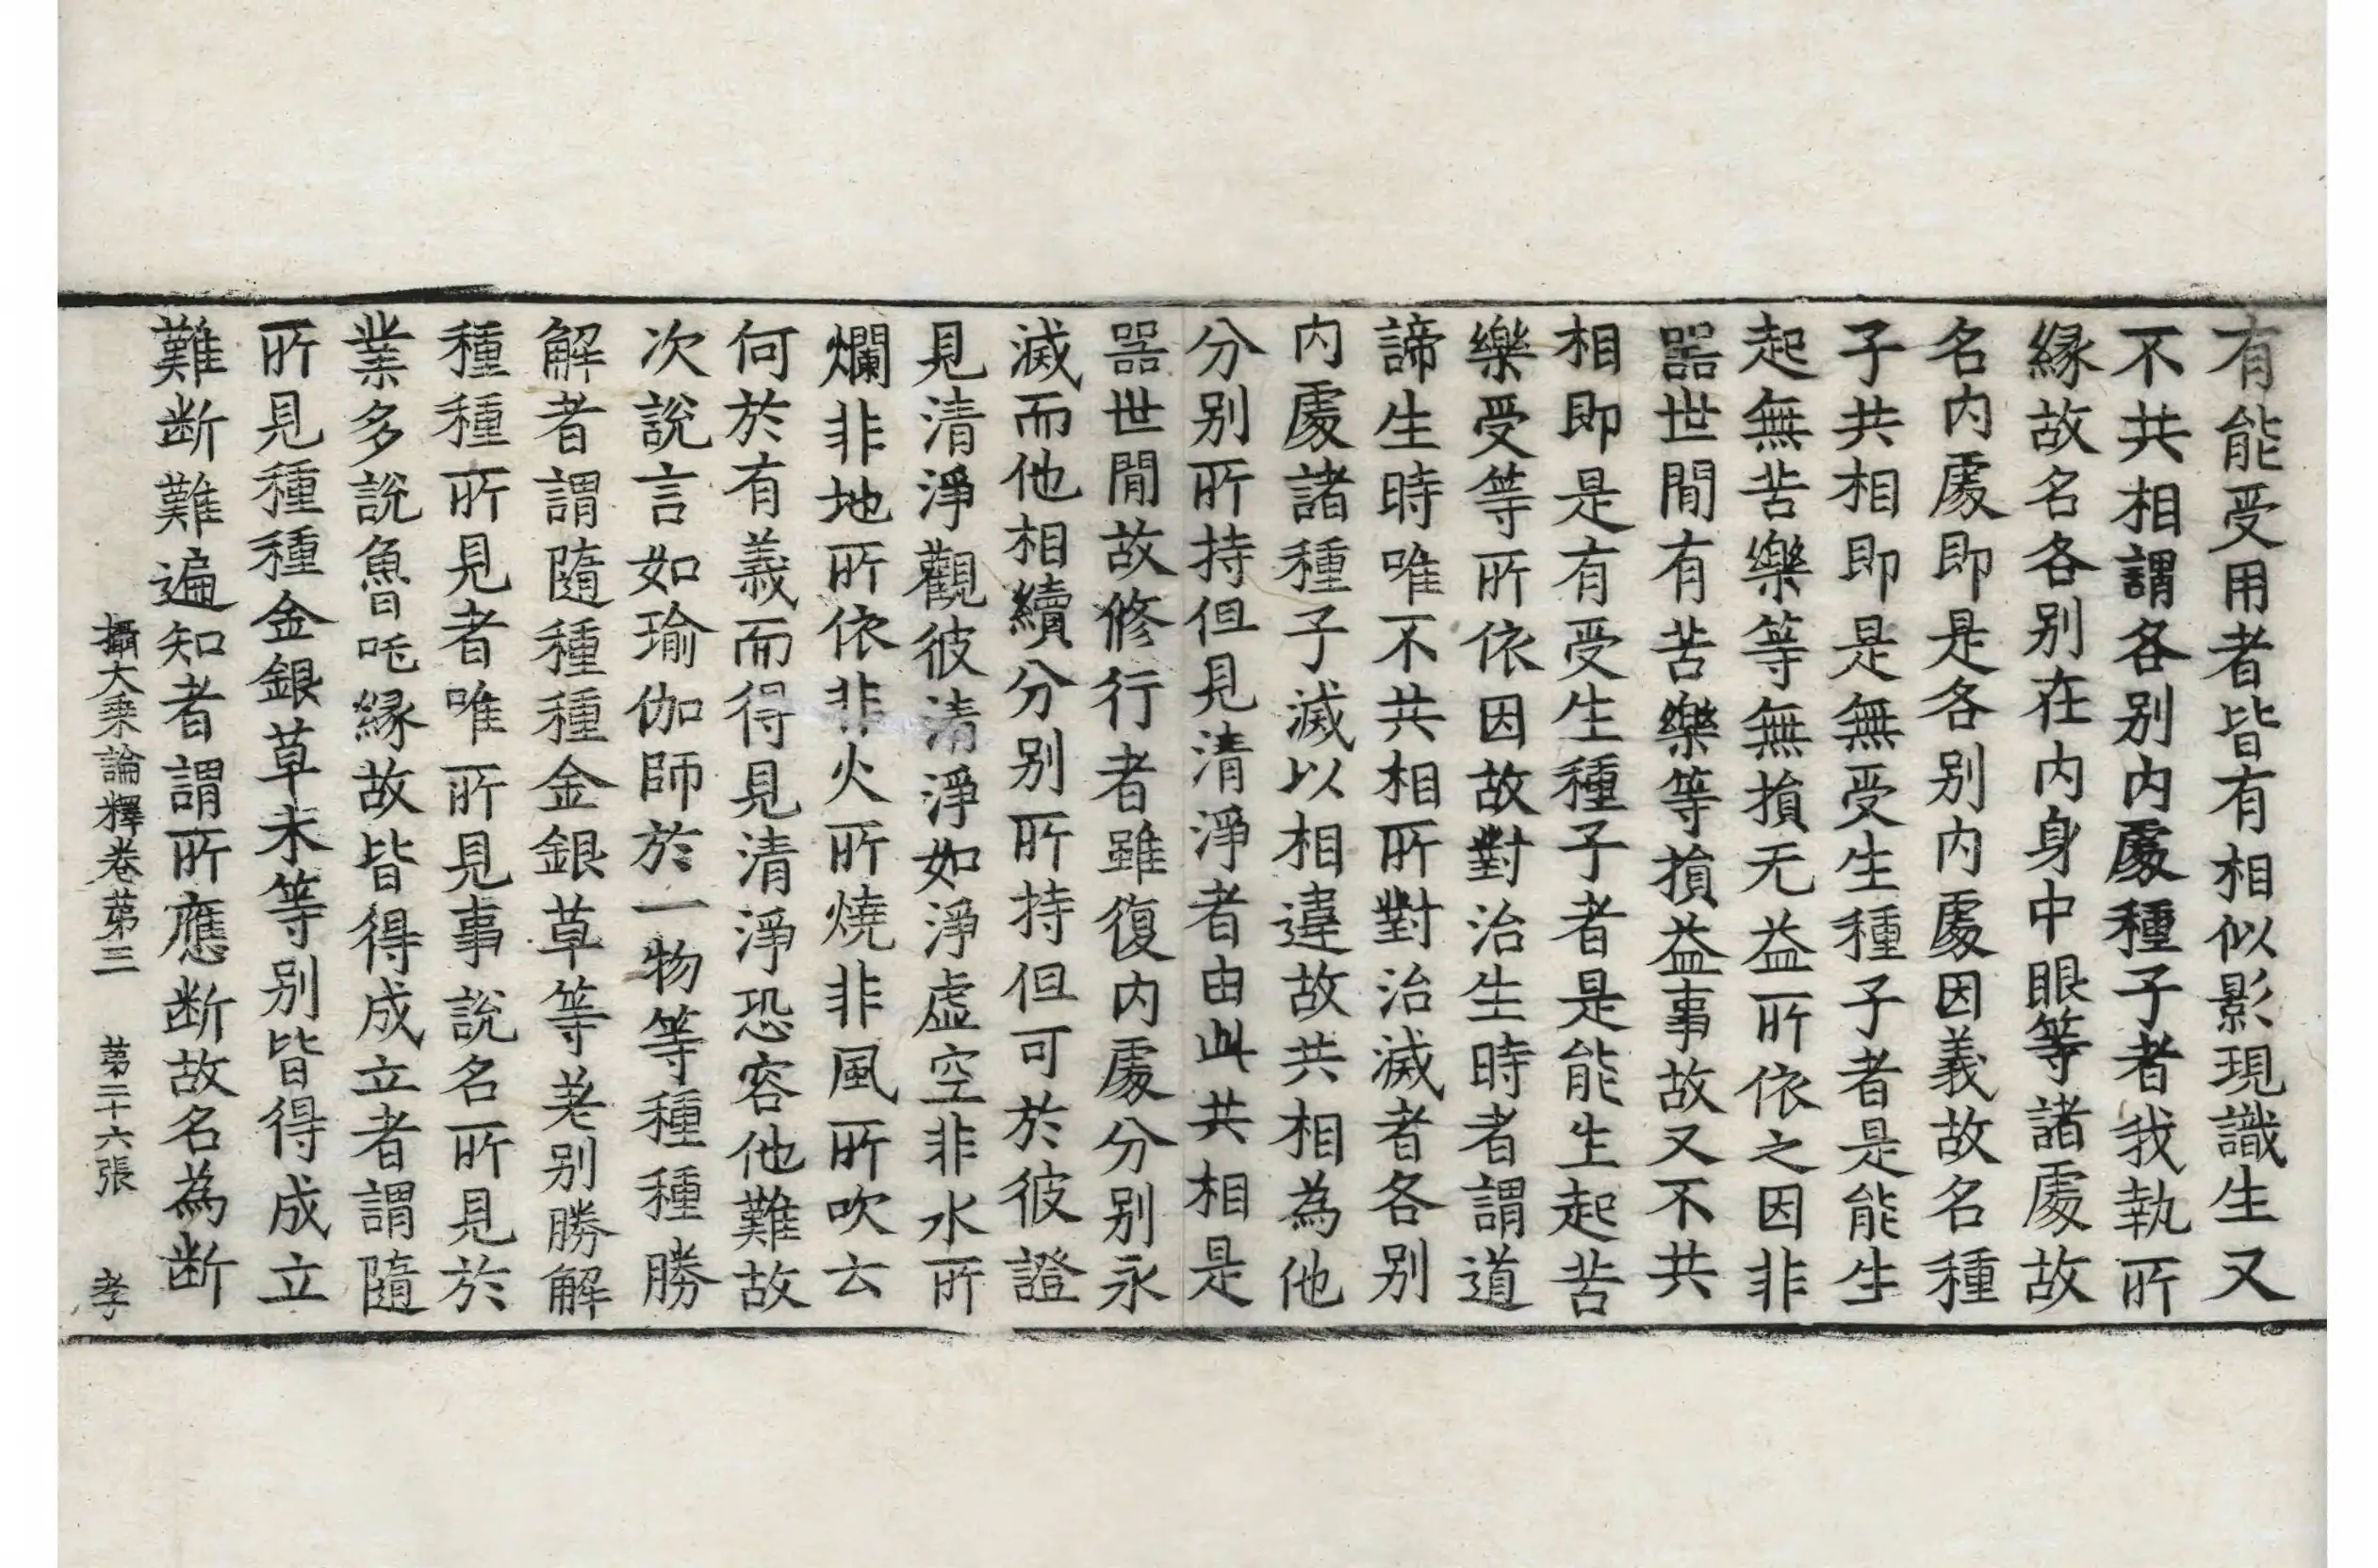 有能受用者皆有相似影現識生又
不共相謂各別内處種子者我執所
縁故名各別在内身中眼等諸處故
名内處即是各別内處因義故名種
子共相即是無受生種子者是能生
起無苦樂等無損无益所依之因非
器世間有苦樂等損益事故又不共
相即是有受生種子者是能生起苦
樂受等所依因故對治生時者謂道
諦生時唯不共相所對治滅者各別
内處諸種子滅以相違故共相為他
分別所持但見清淨者由此共相是
器世間故修行者雖復内處分別永
滅而他相續分別所持但可於彼證
見清淨觀彼清淨如淨虛空非水所
爛非地所依非火所燒非風所吹云
何於有義而得見清淨恐容他難故
次說言如瑜伽師於一物等種種勝
解者謂隨種種金銀草等差別勝解
種種所見者唯所見事說名所見於
業多說魯吒縁故皆得成立者謂隨
所見種種金銀草木等別皆得成立
難断難遍知者謂所應断故名為断
攝大乗論釋卷苐三 苐二十六張 孝